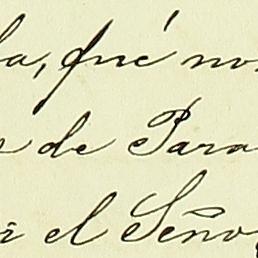 la, fué no
de Para
el Seño